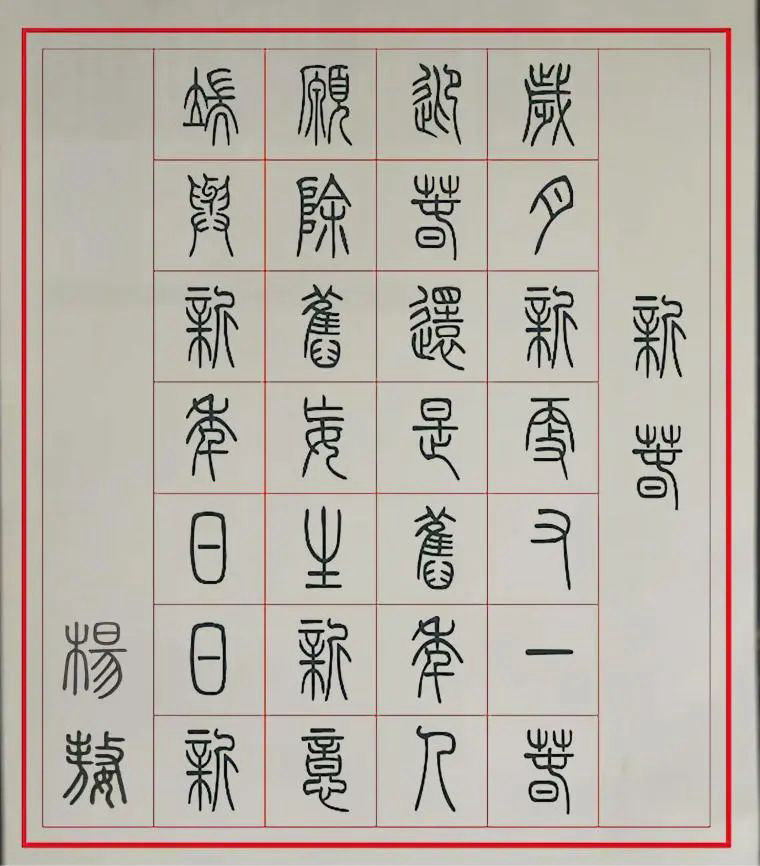 新春
歲月新更又一春
迎春還是舊年人
願除舊妄生新意
端與新年日日新
楊